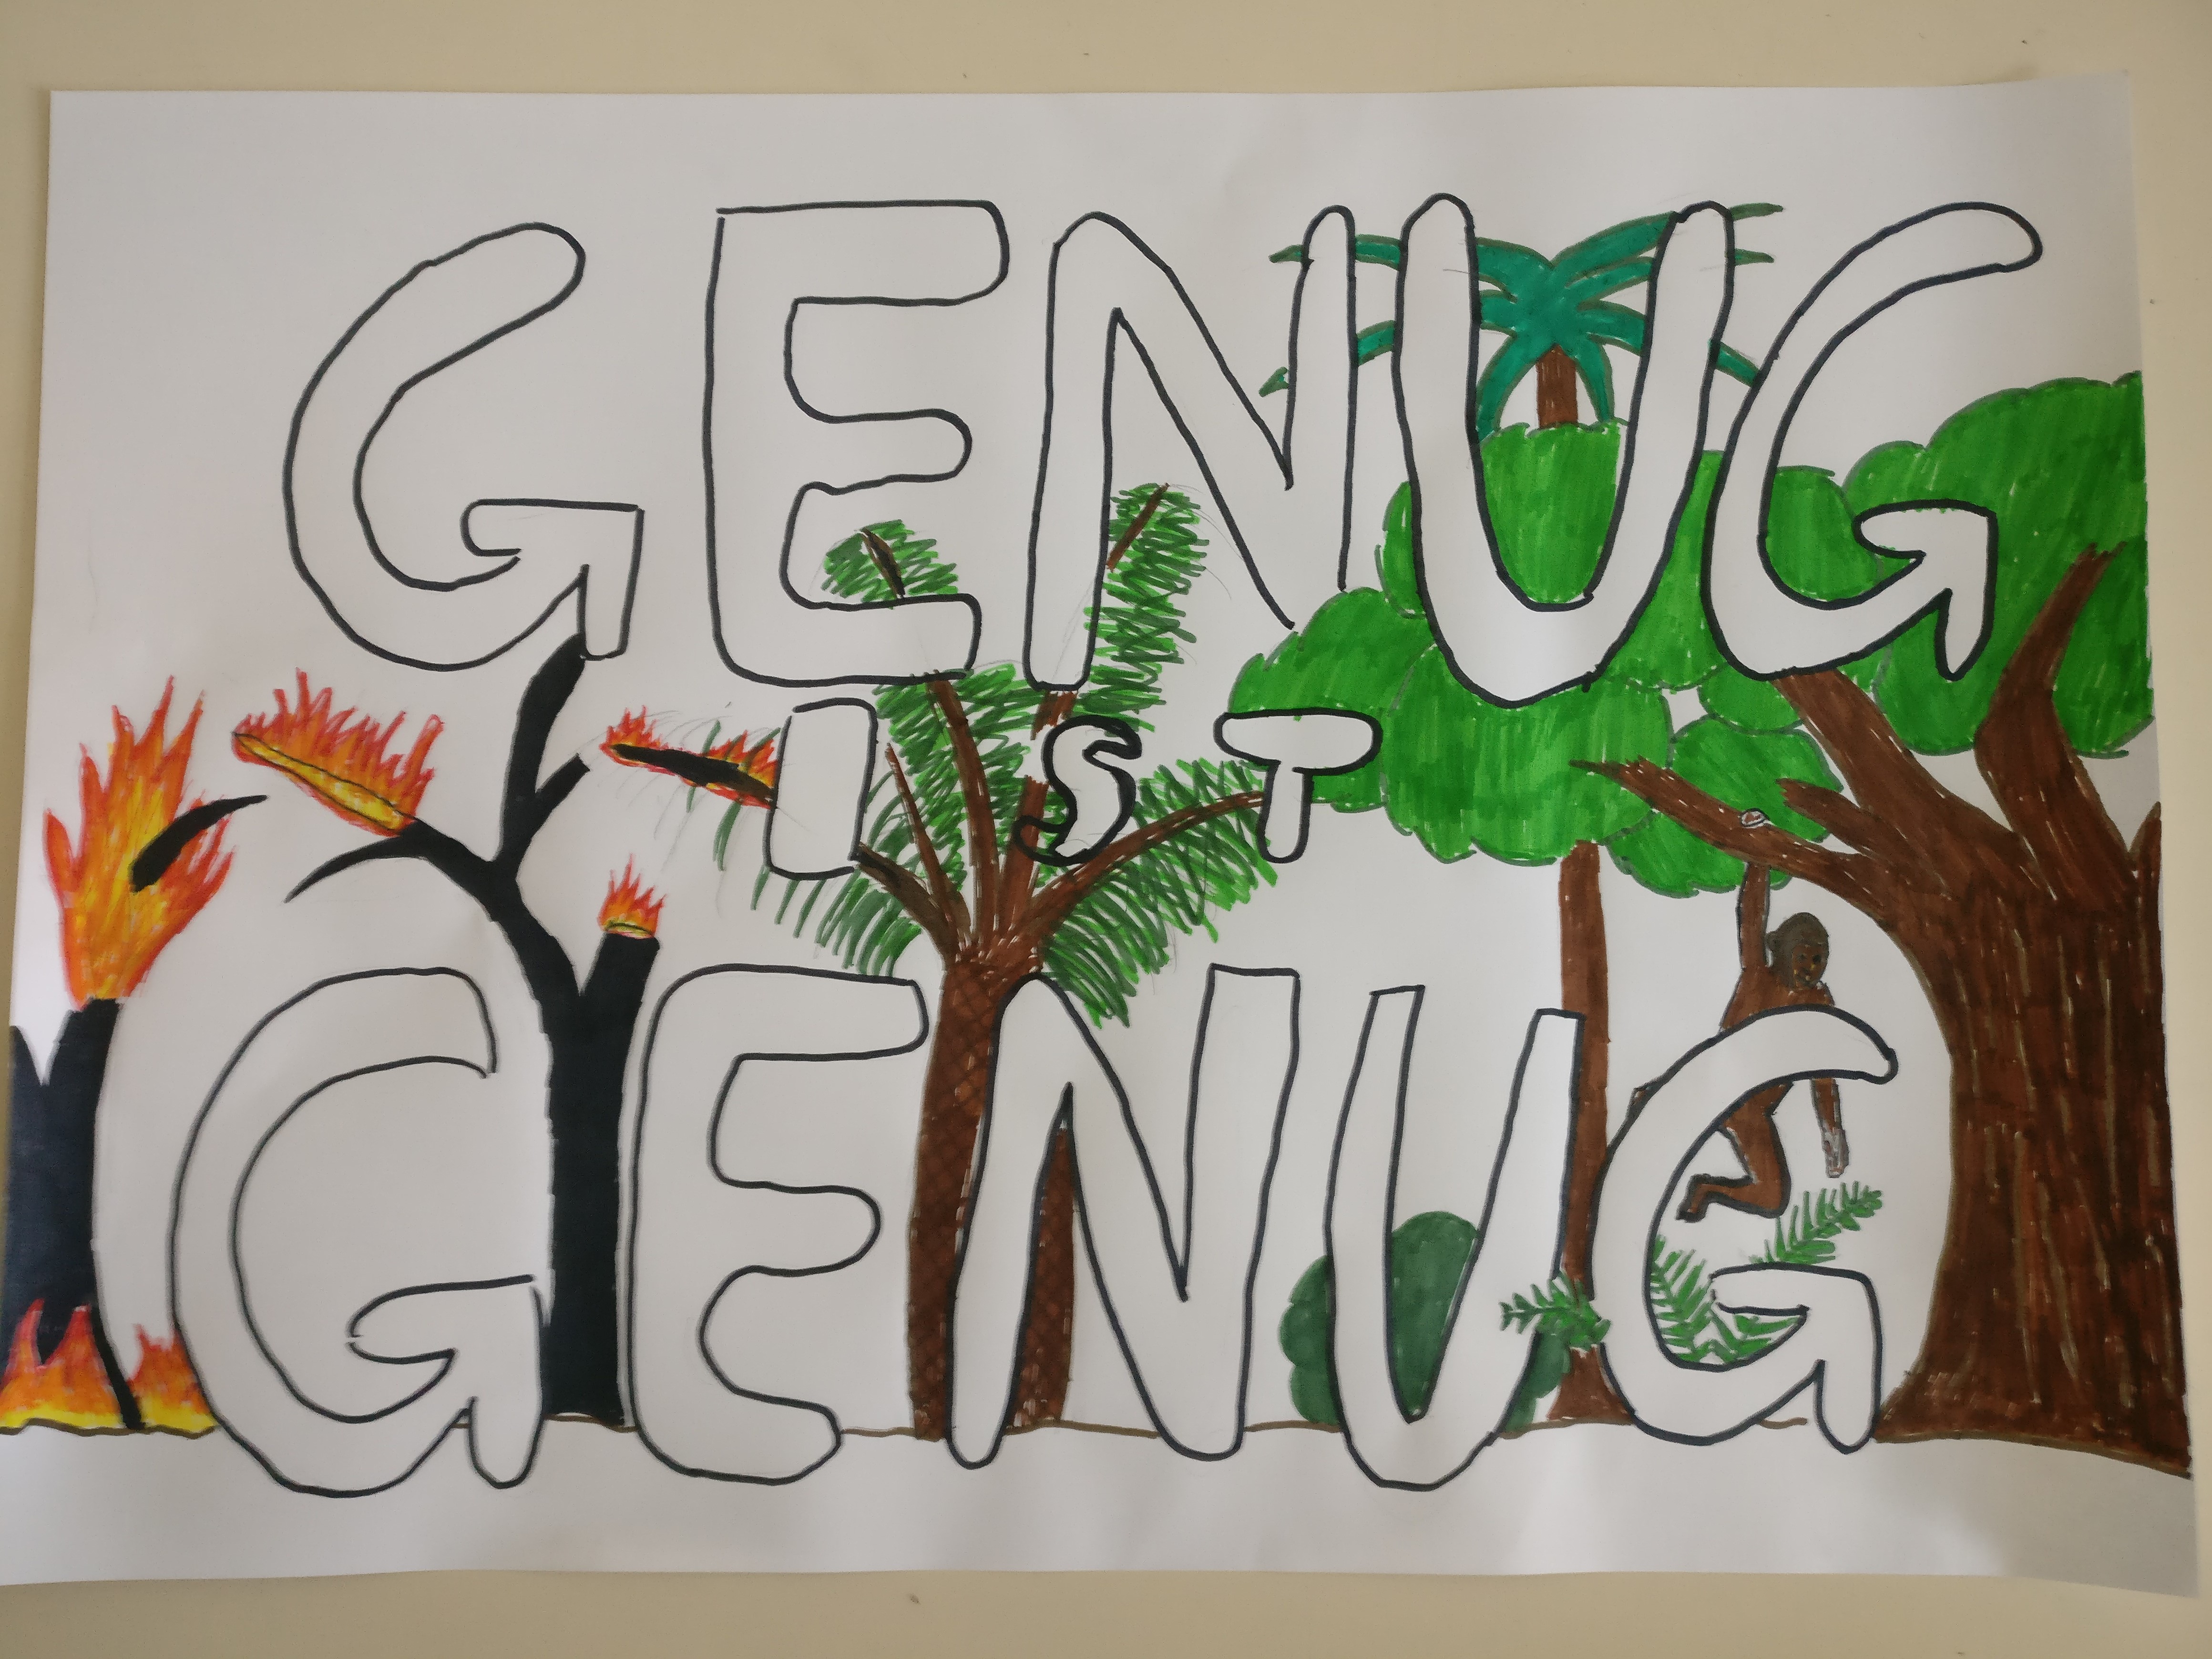 GENUG
IST
GENUG